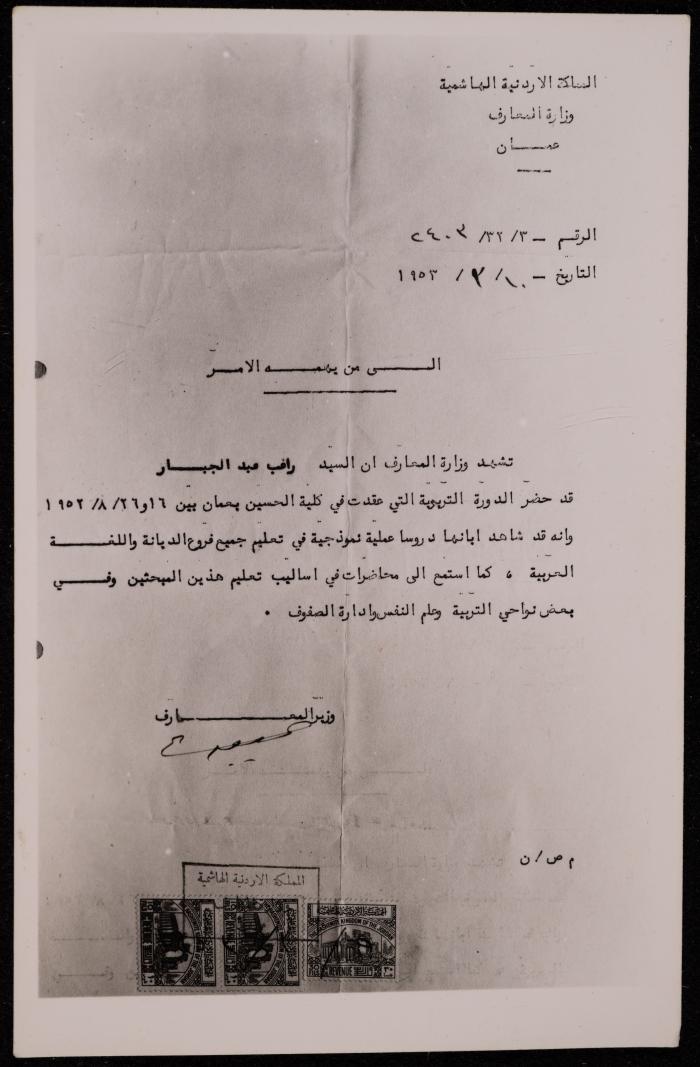 المملكة الاردنية الهاشمية
وزارة المعارف
عمــــان
الرقم – ٣/ ٣٢/ ٢٤٠٣
التاريخ – ١٠/ ٢/ ١٩٥٣
الــــى من يهمــــه الامــر
تشهد وزارة المعارف ان السيد راغب عبد الجبــــار
قد حضر الدورة التربوية التي عقدت في كلية الحسين بعمان بين ١٦و٢٦/ ٨/ ١٩٥٢
وانه قد شاهد ابانها دروسا عملية نموذجية في تعليم جميع فروع الديانة واللغــــة
العربية ، كما استمع الى محاضرات في اساليب تعليم هذين المبحثين وفــــي
بعض نواحي التربية وعلم النفس وادارة الصفوف .
وزير المعــــــارف
م ص/ ن
المملكة الاردنية الهاشمية
KINGDOM OF THE JORDAN
REVENUE